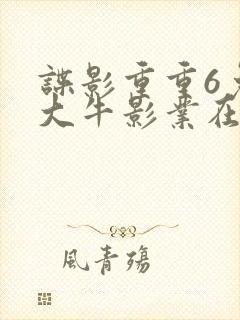 諜影重重6
大牛影業在
風青殤